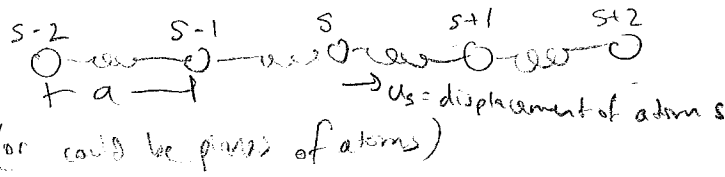 s-2 s-1 s s+1 s+2
a
→ us = displacement of atom s
(or could be planes of atoms)